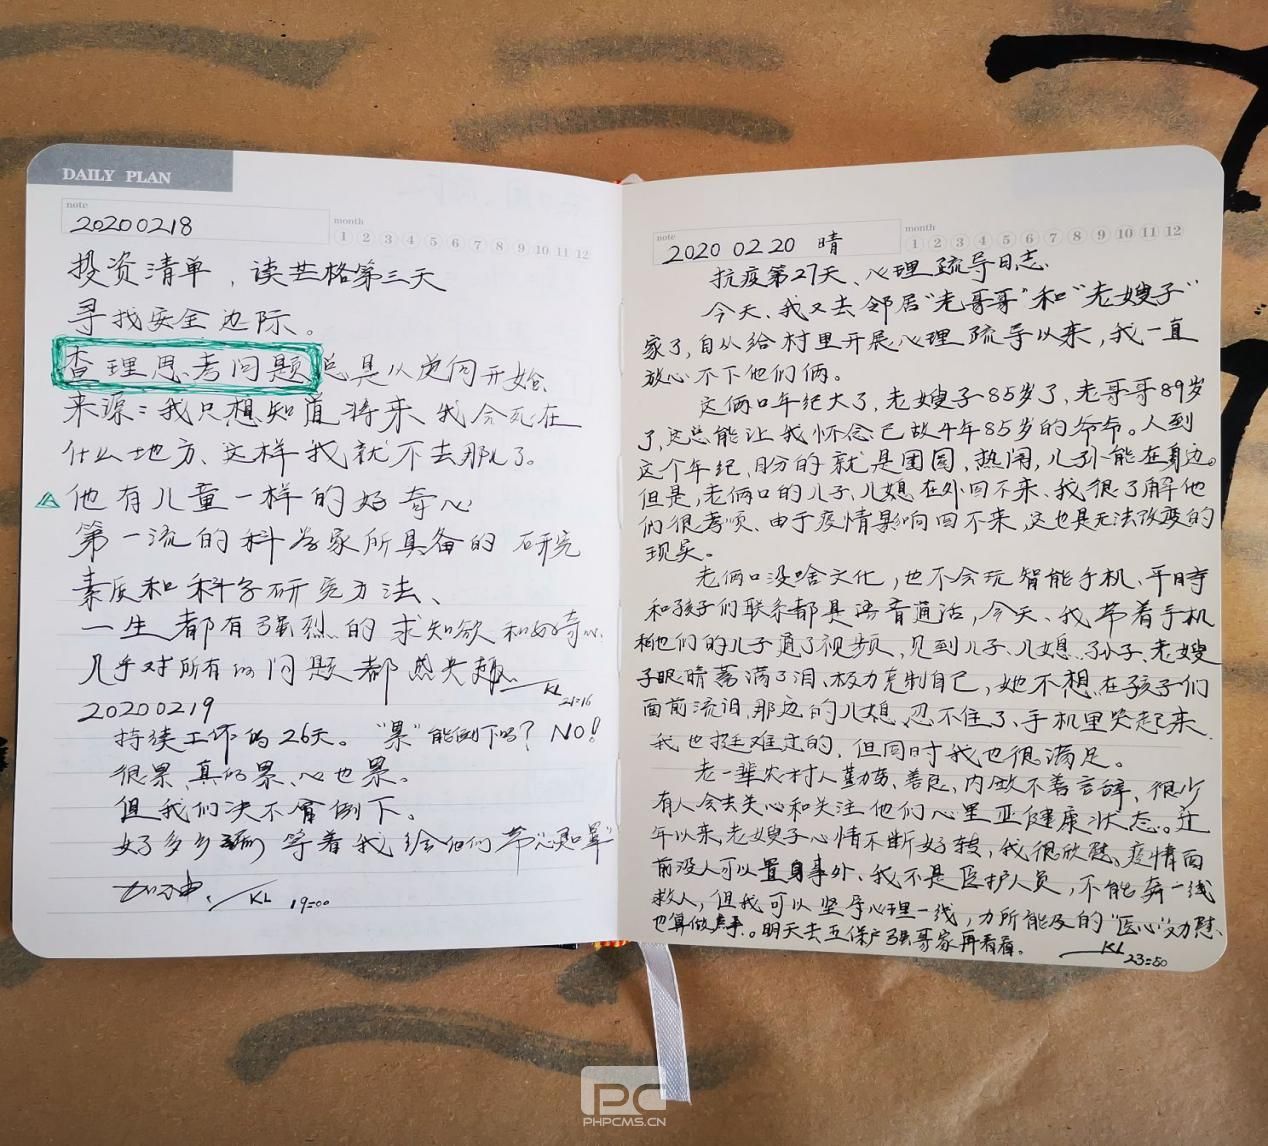 DAILY PLAN
note
20200218
month
1 2 3 4 5 6 7 8 9 10 11 12
投资清单，读芒格第三天
寻找安全边际。
查理思考问题总是从逆向开始、
来源：我只想知道将来我会死在
什么地方、这样我就不去那儿了。
他有儿童一样的好奇心
第一流的科学家所具备的研究
素质和科学研究方法、
一生都有强烈的求知欲和好奇心、
几乎对所有的问题都感兴趣
KL
21:16
20200219
持续工作的26天。"累"能倒下吗？NO！
很累，真的累、心也累。
但我们决不会倒下。
好多乡等着我给他们带
加油、KL 19:00
note
2020 02 20 晴
month
1 2 3 4 5 6 7 8 9 10 11 12
抗疫第27天、心理疏导日志、
今天、我又去邻居"老哥哥"和"老嫂子"
家了，自从给村里开展心理疏导以来，我一直
放心不下他们俩。
这俩口年纪大了，老嫂子85岁了，老哥哥89岁
了，这总能让我怀念已故4年85岁的爷爷。人到
这个年纪，盼的就是团圆，热闹，儿孙能在身边。
但是，老俩口的儿子、儿媳在外回不来、我很了解他
们很孝顺、由于疫情影响回不来，这也是无法改变的
现实。
老俩口没啥文化，也不会玩智能手机、平时
和孩子们联系都是语音通话，今天、我带着手机
和他们的儿子通了视频，见到儿子、儿媳、孙子、老嫂
子眼睛蓄满了泪、极力克制自己，她不想在孩子们
面前流泪，那边的儿媳忍不住了、手机里哭起来、
我也挺难过的，但同时我也很满足。
老一辈农村人勤劳、善良、内敛不善言辞、很少
有人会去关心和关注他们心里亚健康状态。近
年以来，老嫂子心情不断好转，我很欣慰、疫情面
前没人可以置身事外、我不是医护人员，不能奔一线
救人，但我可以坚守心理一线，力所能及的"医心"
也算做。明天去五保户强哥家再看看。
KL 23:50
PC
PHPCMS.CN